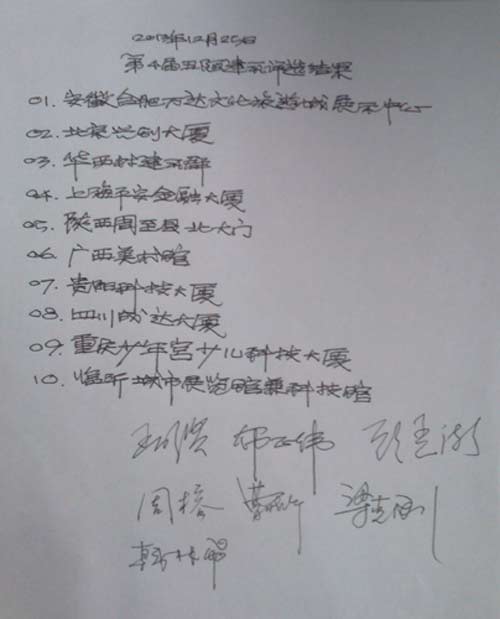 2013年12月25日
第4届丑陋建筑评选结果
01. 安徽合肥万达文化旅游城展示中心
02. 北京兴创大厦
03. 华西村建筑群
04. 上海平安金融大厦
05. 陕西周至县北大门
06. 广西美术馆
07. 贵阳科技大厦
08. 四川成达大厦
09. 重庆少年宫少儿科技大厦
10. 临沂城市展览馆兼科技馆
王明贤 顾孟潮
周榕 曹晓昕 梁克刚
韩林飞